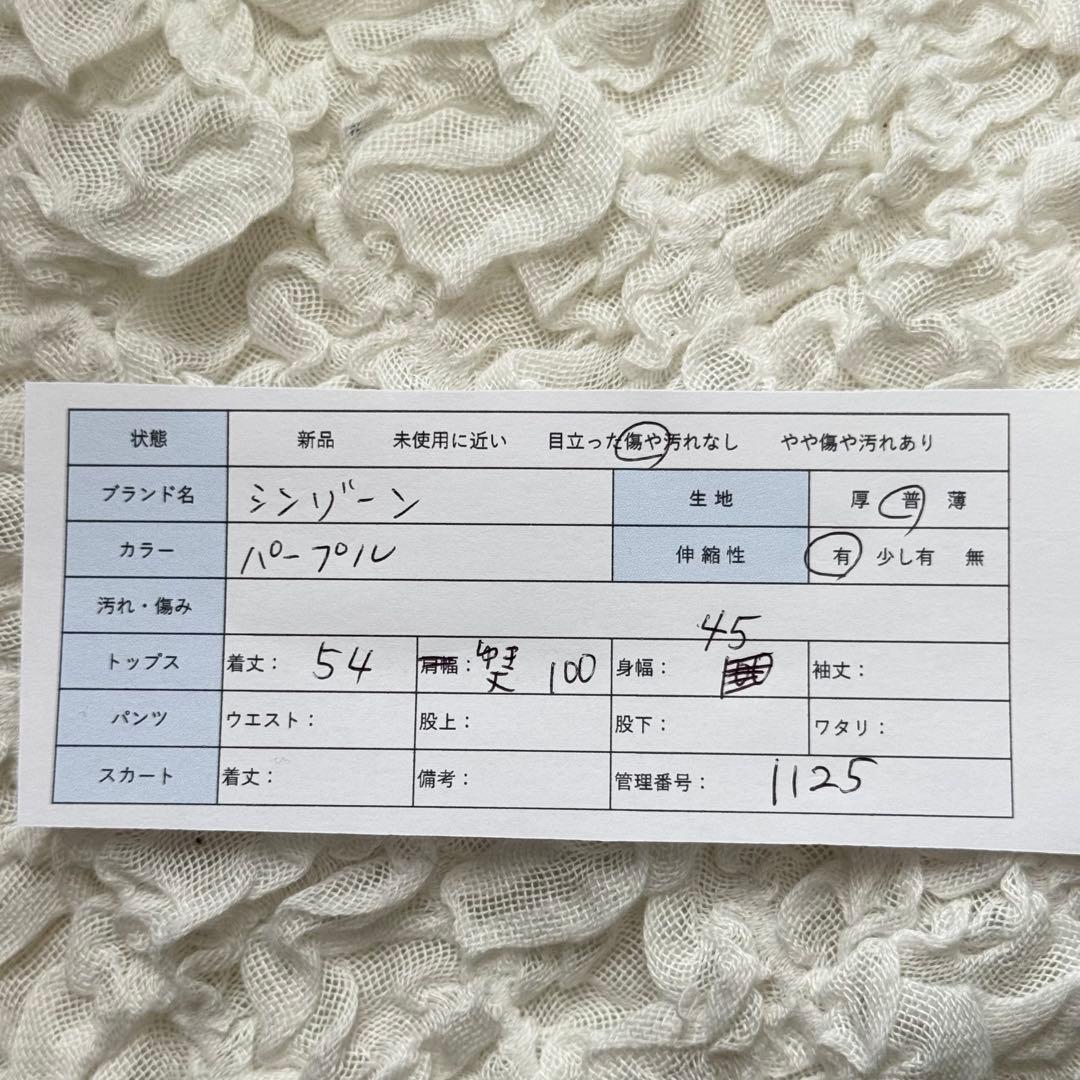 状態 新品 未使用に近い 目立った傷や汚れなし やや傷や汚れあり
ブランド名 シンゾーン 生地 厚 普 薄
カラー パープル 伸縮性 有 少し有 無
汚れ・傷み
トップス 着丈: 54 肩幅: ゆき丈 100 身幅: 45 袖丈:
パンツ ウエスト: 股上: 股下: ワタリ:
スカート 着丈: 備考: 管理番号: 1125